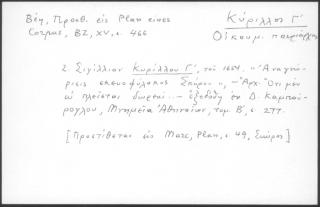 Βέη, Προσθ. εἰς Plan eines
Corpus, BZ, XV, σ. 466
Κύριλλος Γ΄
Οἰκουμ. πατριάρχης
2. Σιγίλλιον Κυρίλλου Γ΄, τοῦ 1654, "Ἀναγνώ-
ρισις σκευοφύλακος Σπύρου", - Ἀρχ. Ὅτι μὲν
αἱ πλεῖσται δωρεαί.. - ἐξεδόθη ἐν Δ. Καμπού-
ρογλου, Μνημεῖα Ἀθηναίων, τομ. Β΄, σ. 277.
[Προστίθεται εἰς Marc, Plan, σ. 49, Σπύρος]